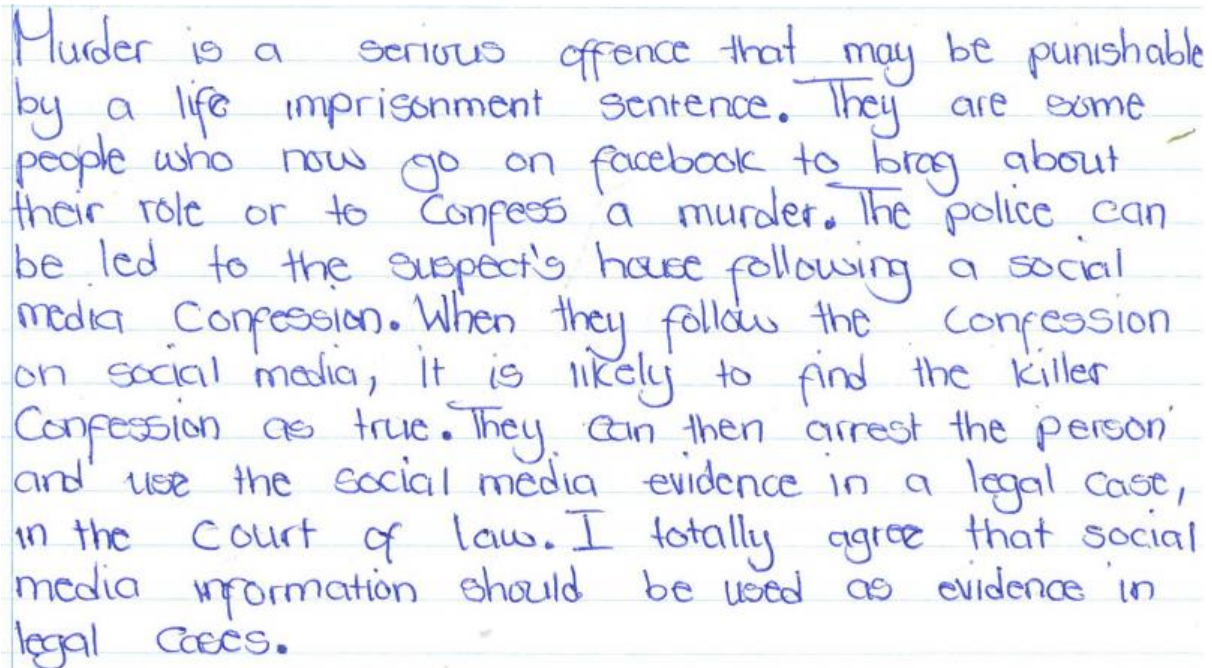 Murder is a serious offence that may be punishable
by a life imprisonment sentence. They are some
people who now go on facebook to brag about
their role or to Confess a murder. The police can
be led to the suspect's house following a social
media Confession. When they follow the confession
on social media, it is likely to find the killer
Confession as true. They can then arrest the person
and use the social media evidence in a legal case,
in the court of law. I totally agree that social
media information should be used as evidence in
legal cases.